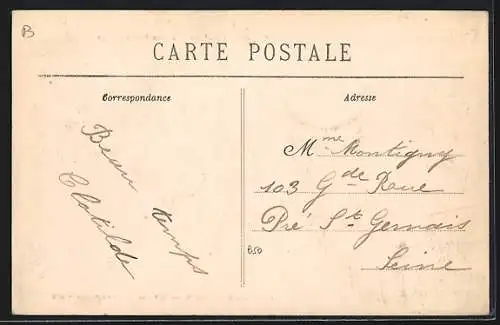 B
CARTE POSTALE
Correspondance
Adresse
Beau temps
Clotilde
Mme Montigny
103 Gde Roue
Pré St Gervais
Seine
B50